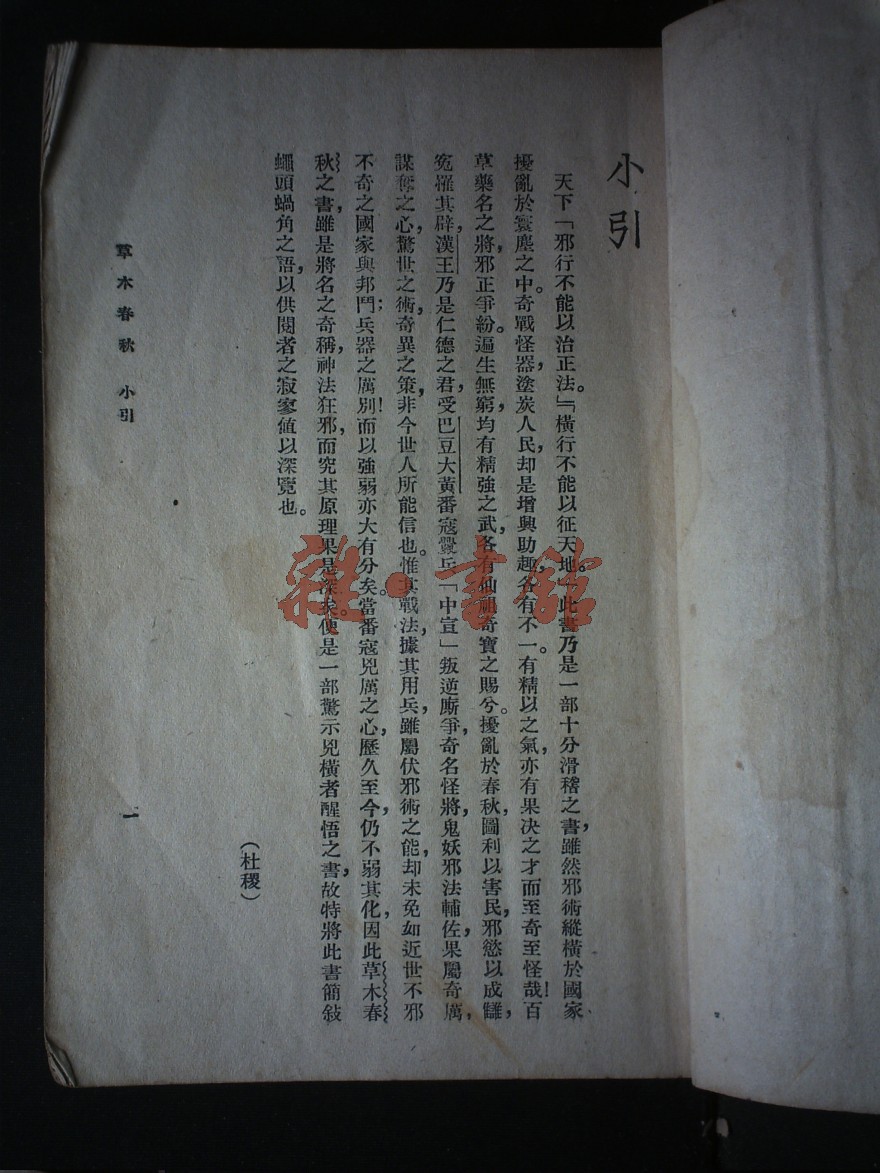 小引
天下「邪行不能以治正法。」「橫行不能以征天地。」此書乃是一部十分滑稽之書，雖然邪術縱橫於國家
擾亂於寰塵之中。奇戰怪器，塗炭人民，却是增興助趣，各有不一。有精以之氣，亦有果決之才而至奇至怪哉！百
草藥名之將，邪正爭紛。遍生無窮，均有精強之武，各有仙祖奇寶之賜兮。擾亂於春秋，圖利以害民，邪慾以成讎，
寃摧其辟，漢王乃是仁德之君，受巴豆大黃番寇釁兵「中宣」叛逆廝爭，奇名怪將，鬼妖邪法輔佐，果屬奇厲，
謀奪之心，驚世之術，奇異之策，非今世人所能信也。惟其戰法，據其用兵，雖屬伏邪術之能，却未免如近世不邪
不奇之國家與邦鬥；兵器之厲別！而以強弱亦大有分矣。當番寇兇厲之心，歷久至今，仍不弱其化，因此草木春
秋之書，雖是將名之奇稱，神法狂邪，而究其原理果是深矣。便是一部驚示兇橫者醒悟之書，故特將此書簡敍
蠅頭蝸角之語，以供閱者之寂寥値以深覽也。
（杜稷）
草木春秋 小引
一
雜·書館